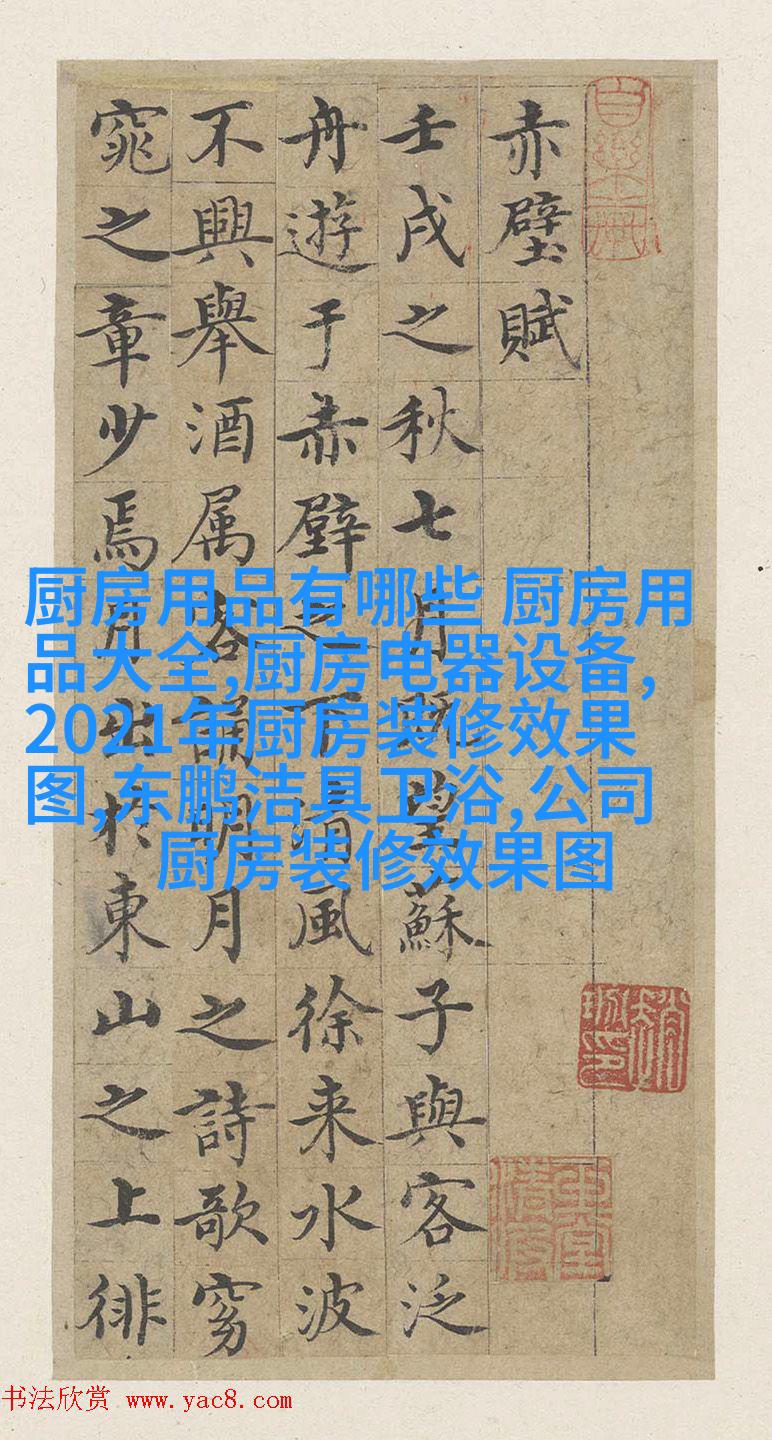 赤壁賦
壬戌之秋七月既望蘇子與客泛
舟遊于赤壁之下清風徐来水波
不興舉酒属客誦明月之詩歌窈
窕之章少焉月出於東山之上徘
厨房用品有哪些 厨房用
品大全,厨房电器设备,
2021年厨房装修效果
图,东鹏洁具卫浴,公司
厨房装修效果图
书法欣赏 www.yac8.com